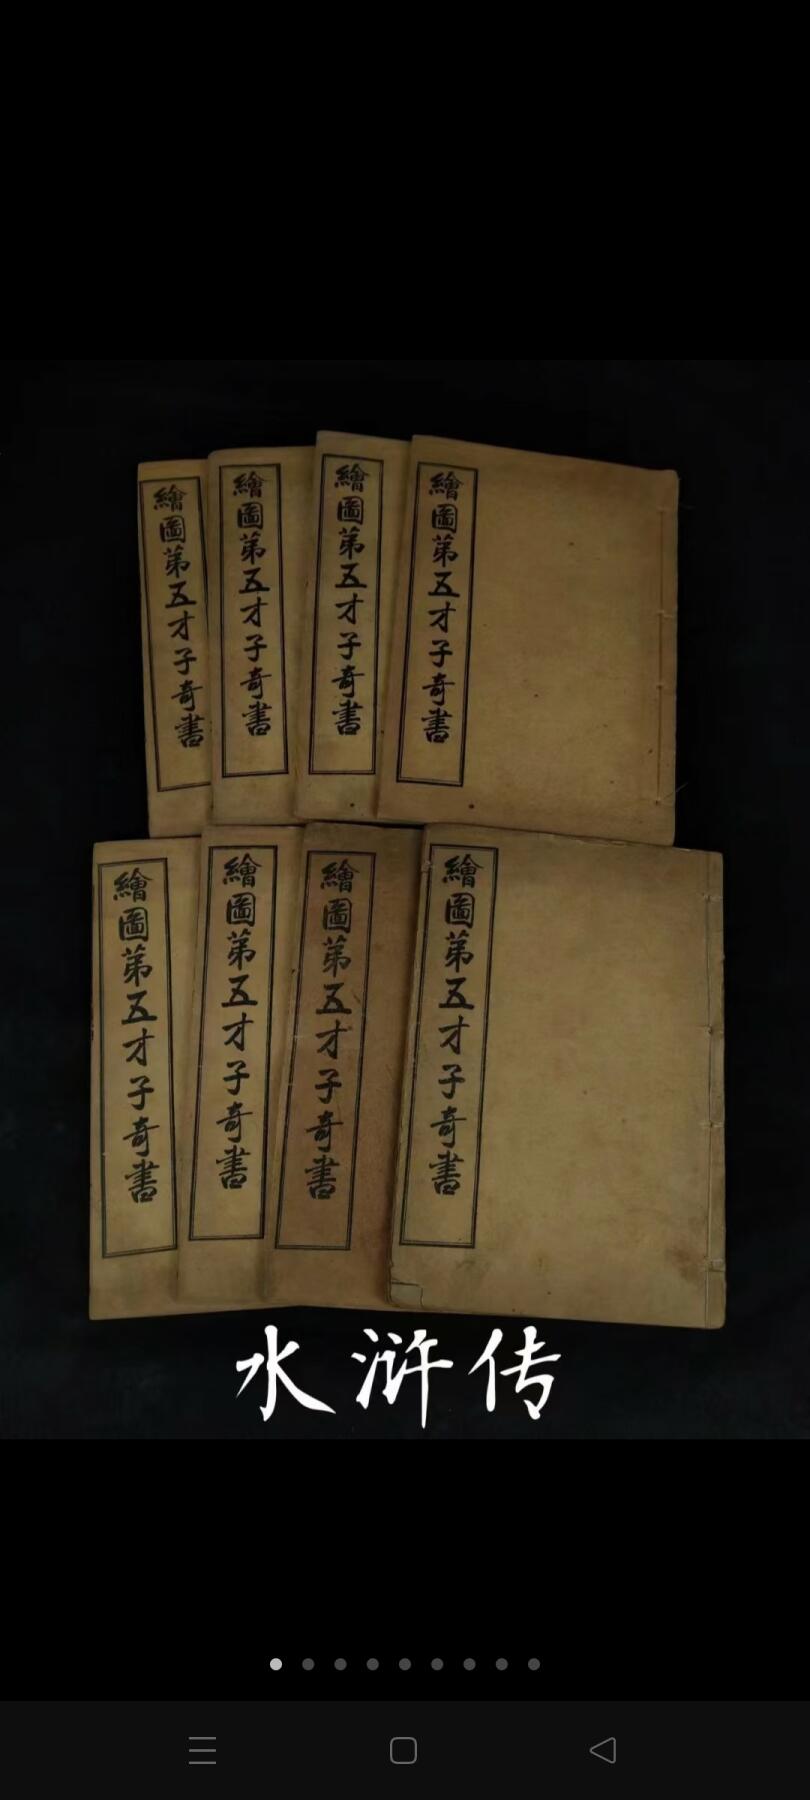 繪圖第五才子奇書
繪圖第五才子奇書
繪圖第五才子奇書
繪圖第五才子奇書
繪圖第五才子奇書
繪圖第五才子奇書
繪圖第五才子奇書
繪圖第五才子奇書
水浒传